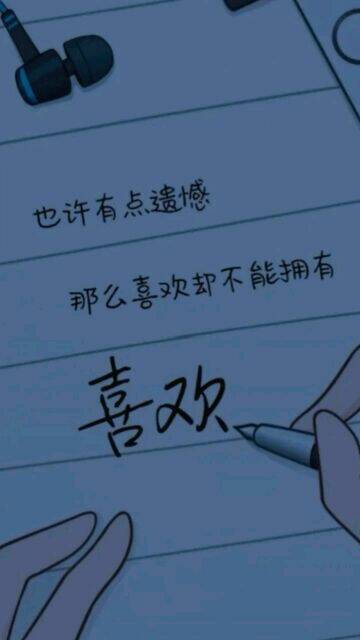 也许有点遗憾
那么喜欢却不能拥有
喜欢